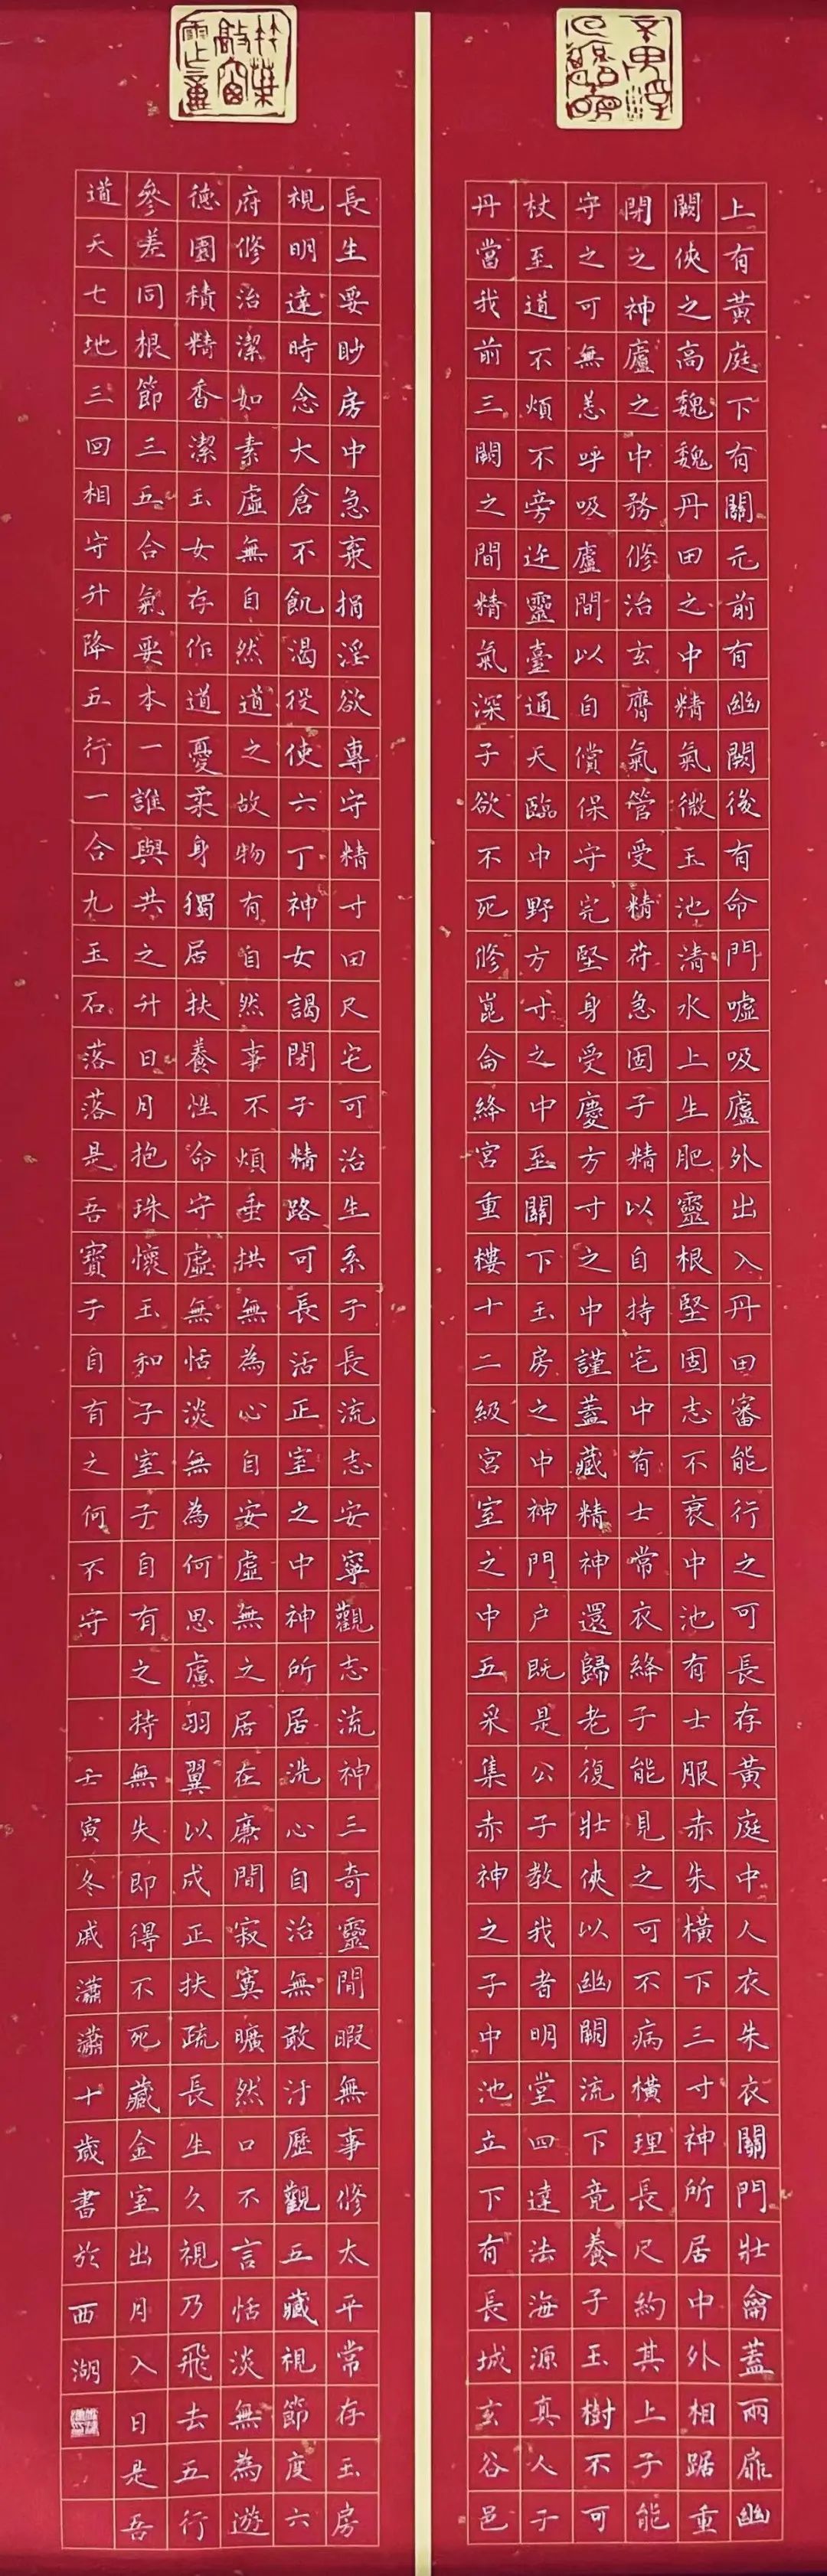 上有黃庭下有關元前有幽闕後有命門噓吸廬外出入丹田審能行之可長存黃庭中人衣朱衣關門壯籥蓋兩扉幽
闕俠之高魏魏丹田之中精氣微玉池清水上生肥靈根堅固志不衰中池有士服赤朱橫下三寸神所居中外相踞重
閉之神廬之中務修治玄膺氣管受精苻急固子精以自持宅中有士常衣絳子能見之可不病橫理長尺約其上子能
守之可無恙呼吸廬間以自償保守完堅身受慶方寸之中謹蓋藏精神還歸老復壯俠以幽闕流下竟養子玉樹不可
杖至道不煩不旁迕靈臺通天臨中野方寸之中至關下玉房之中神門户既是公子教我者明堂四達法海源真人子
丹當我前三關之間精氣深子欲不死修崑侖絳宮重樓十二級宮室之中五采集赤神之子中池立下有長城玄谷邑
長生要眇房中急棄捐淫欲專守精寸田尺宅可治生系子長流志安寧觀志流神三奇靈閒暇無事修太平常存玉房
視明達時念大倉不飢渴役使六丁神女謁閉子精路可長活正室之中神所居洗心自治無敢汙歷觀五藏視節度六
府修治潔如素虛無自然道之故物有自然事不煩垂拱無為心自安虛無之居在廉間寂寞曠然口不言恬淡無為遊
德園積精香潔玉女存作道憂柔身獨居扶養性命守虛無恬淡無為何思慮羽翼以成正扶疏長生久視乃飛去五行
參差同根節三五合氣要本一誰與共之升日月抱珠懷玉和子室子自有之持無失即得不死藏金室出月入日是吾
道天七地三回相守升降五行一合九玉石落落是吾寶子自有之何不守 壬寅冬戚瀟瀟十歲書於西湖